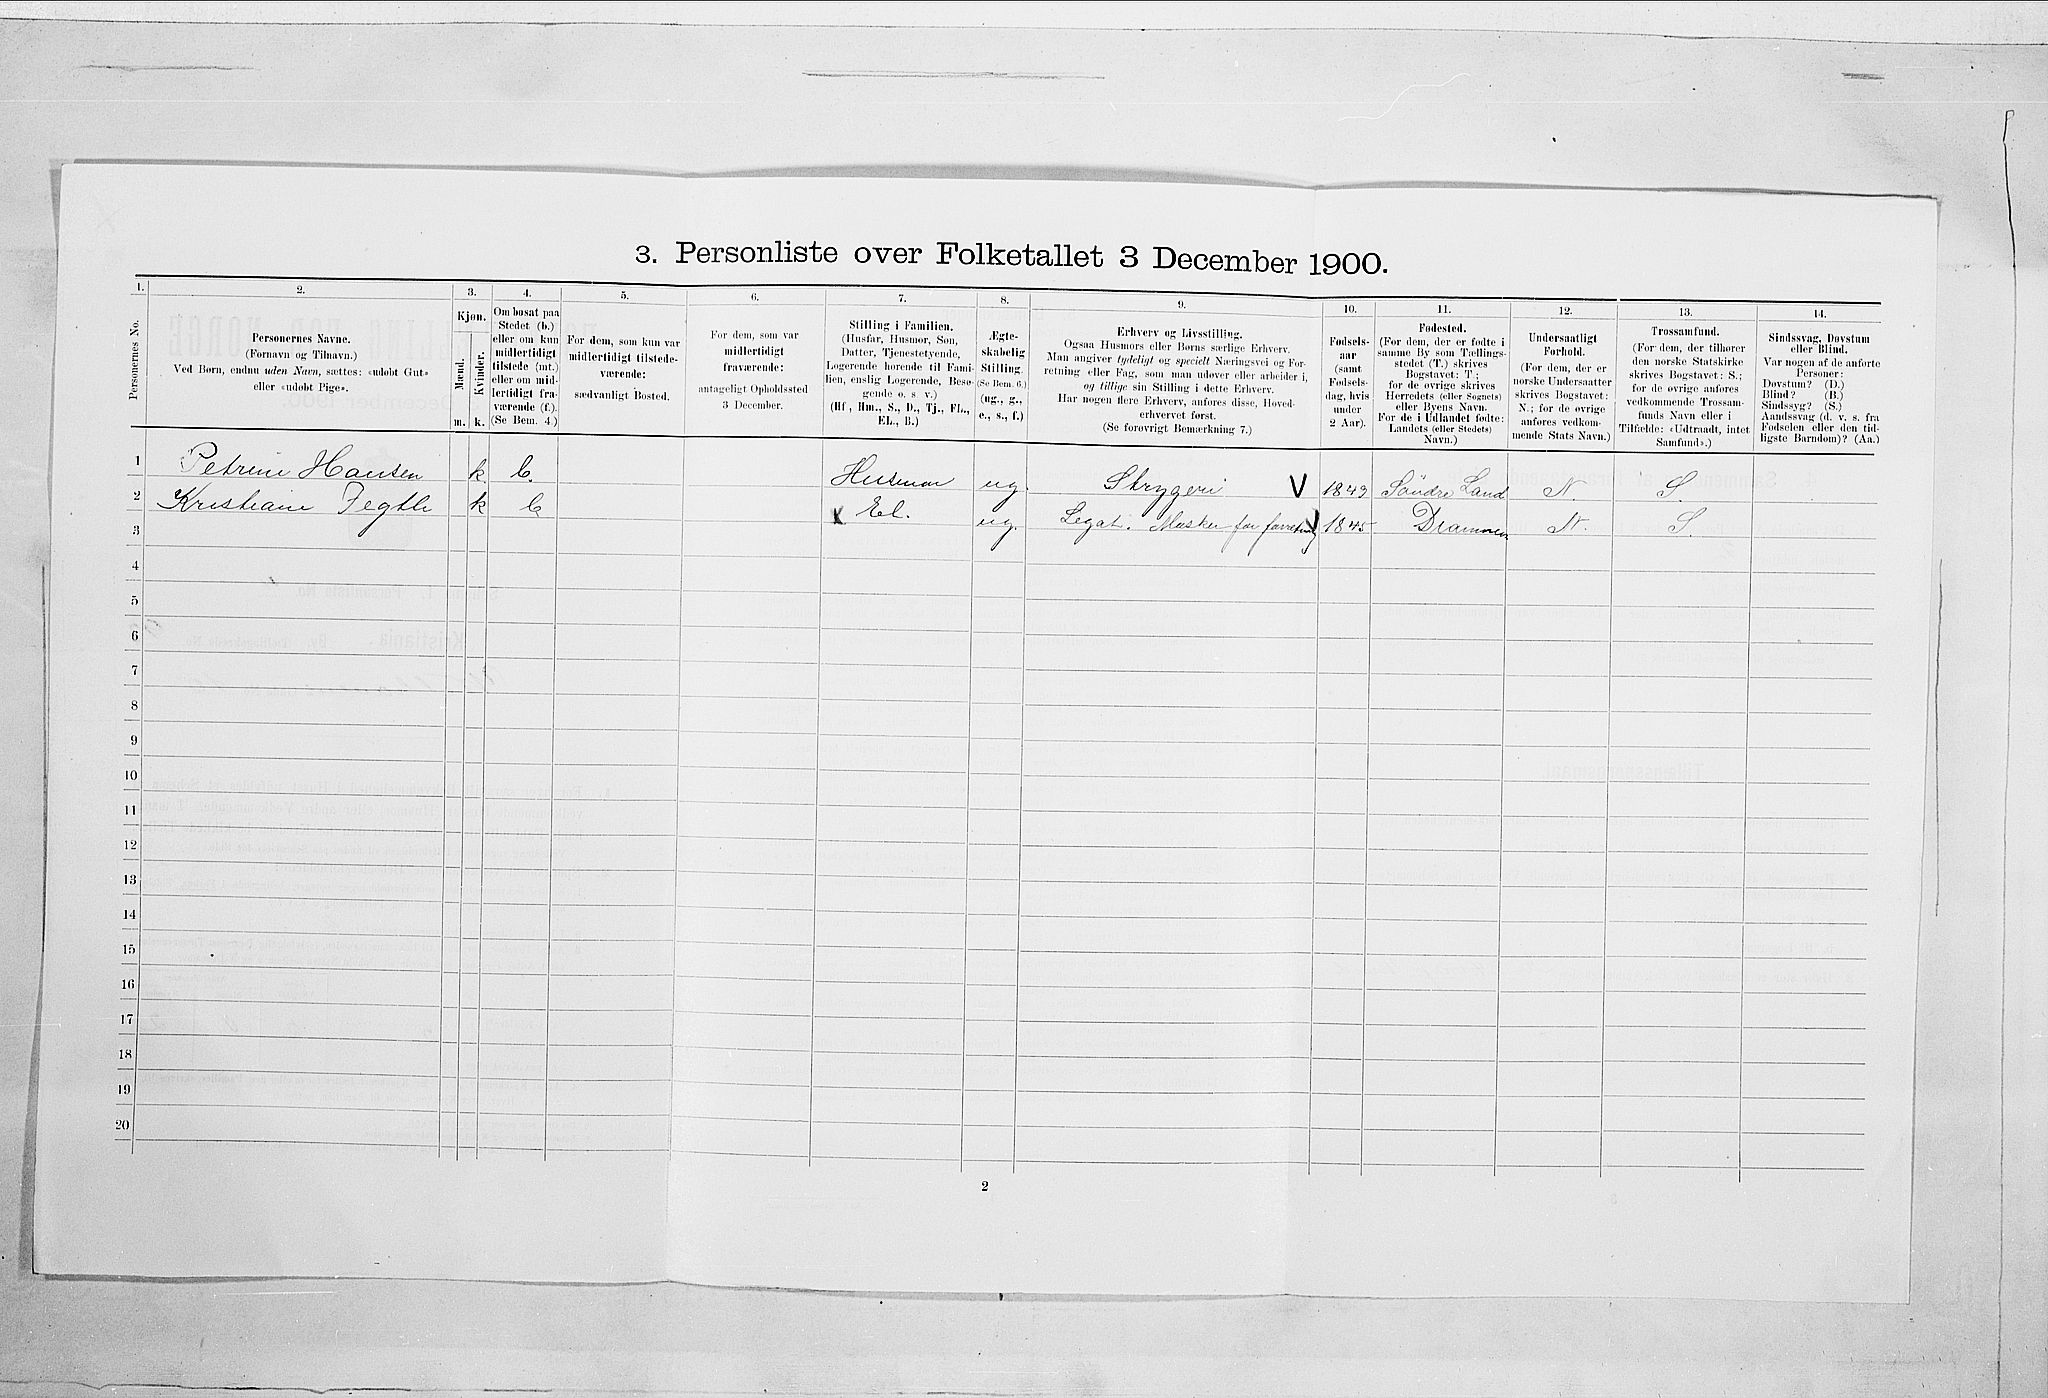 3. Personliste over Folketallet 3 December 1900.
1. 2. 3. 4. 5. 6. 7. 8. 9. 10. 11. 12. 13. 14.
Personernes No.
Personernes Navne.
(Fornavn og Tilnavn.)
Ved Børn, endnu uden Navn, sættes: «udøbt Gut»
eller «udøbt Pige».
Kjøn.
Mænd.
Kvinder.
m. k.
Om bosat paa
Stedet (b.)
eller om kun
midlertidigt
tilstede (mt.)
eller om mid-
lertidigt fra-
værende (f.).
(Se Bem. 4.)
For dem, som kun var
midlertidigt tilstede-
værende:
sædvanligt Bosted.
For dem, som var
midlertidigt
fraværende:
antageligt Opholdssted
3 December.
Stilling i Familien.
(Husfar, Husmor, Søn,
Datter, Tjenestetyende,
Logerende hørende til Fami-
lien, enslig Logerende, Besø-
gende o. s. v.)
(Hf., Hm., S., D., Tj., FL.,
EL., B.)
Ægte-
skabelig
Stilling.
(Se Bem. 6.)
(ug., g.,
e., s., f.)
Erhverv og Livsstilling.
Ogsaa Husmors eller Børns særlige Erhverv.
Man angiver tydeligt og specielt Næringsvei og For-
retning eller Fag, som man udøver eller arbeider i,
og tillige sin Stilling i dette Erhverv.
Har nogen flere Erhverv, anføres disse, Hoved-
erhvervet først.
(Se forøvrigt Bemærkning 7.)
Fødsels-
aar
(samt
Fødsels-
dag, hvis
under
2 Aar).
Fødested.
(For dem, der er fødte i
samme By som Tællings-
stedet (T.) skrives
Bogstavet: T.;
for de øvrige skrives
Herredets (eller Sognets)
eller Byens Navn.
For de i Udlandet fødte:
Landets (eller Stedets)
Navn.)
Undersaatligt
Forhold.
(For dem, der er
norske Undersaatter
skrives Bogstavet:
N.; for de øvrige
anføres vedkom-
mende Stats Navn.)
Trossamfund.
(For dem, der tilhører
den norske Statskirke
skrives Bogstavet: S.;
for de øvrige anføres
vedkommende Trossam-
funds Navn eller i
Tilfælde: «Udtraadt, intet
Samfund».)
Sindssvag, Døvstum
eller Blind.
Var nogen af de anførte
Personer:
Døvstum? (D.)
Blind? (B.)
Sindssyg? (S.)
Aandssvag (d. v. s. fra
Fødselen eller den tid-
ligste Barndom)? (Aa.)
1 Petrine Hansen k. b. Husmor ug. Strygeri V 1849 Söndre Land N. S.
2 Kristiane k b x El. ug. Legat. V 1845 Drammen N. S.
3
4
5
6
7
8
9
10
11
12
13
14
15
16
17
18
19
20
2